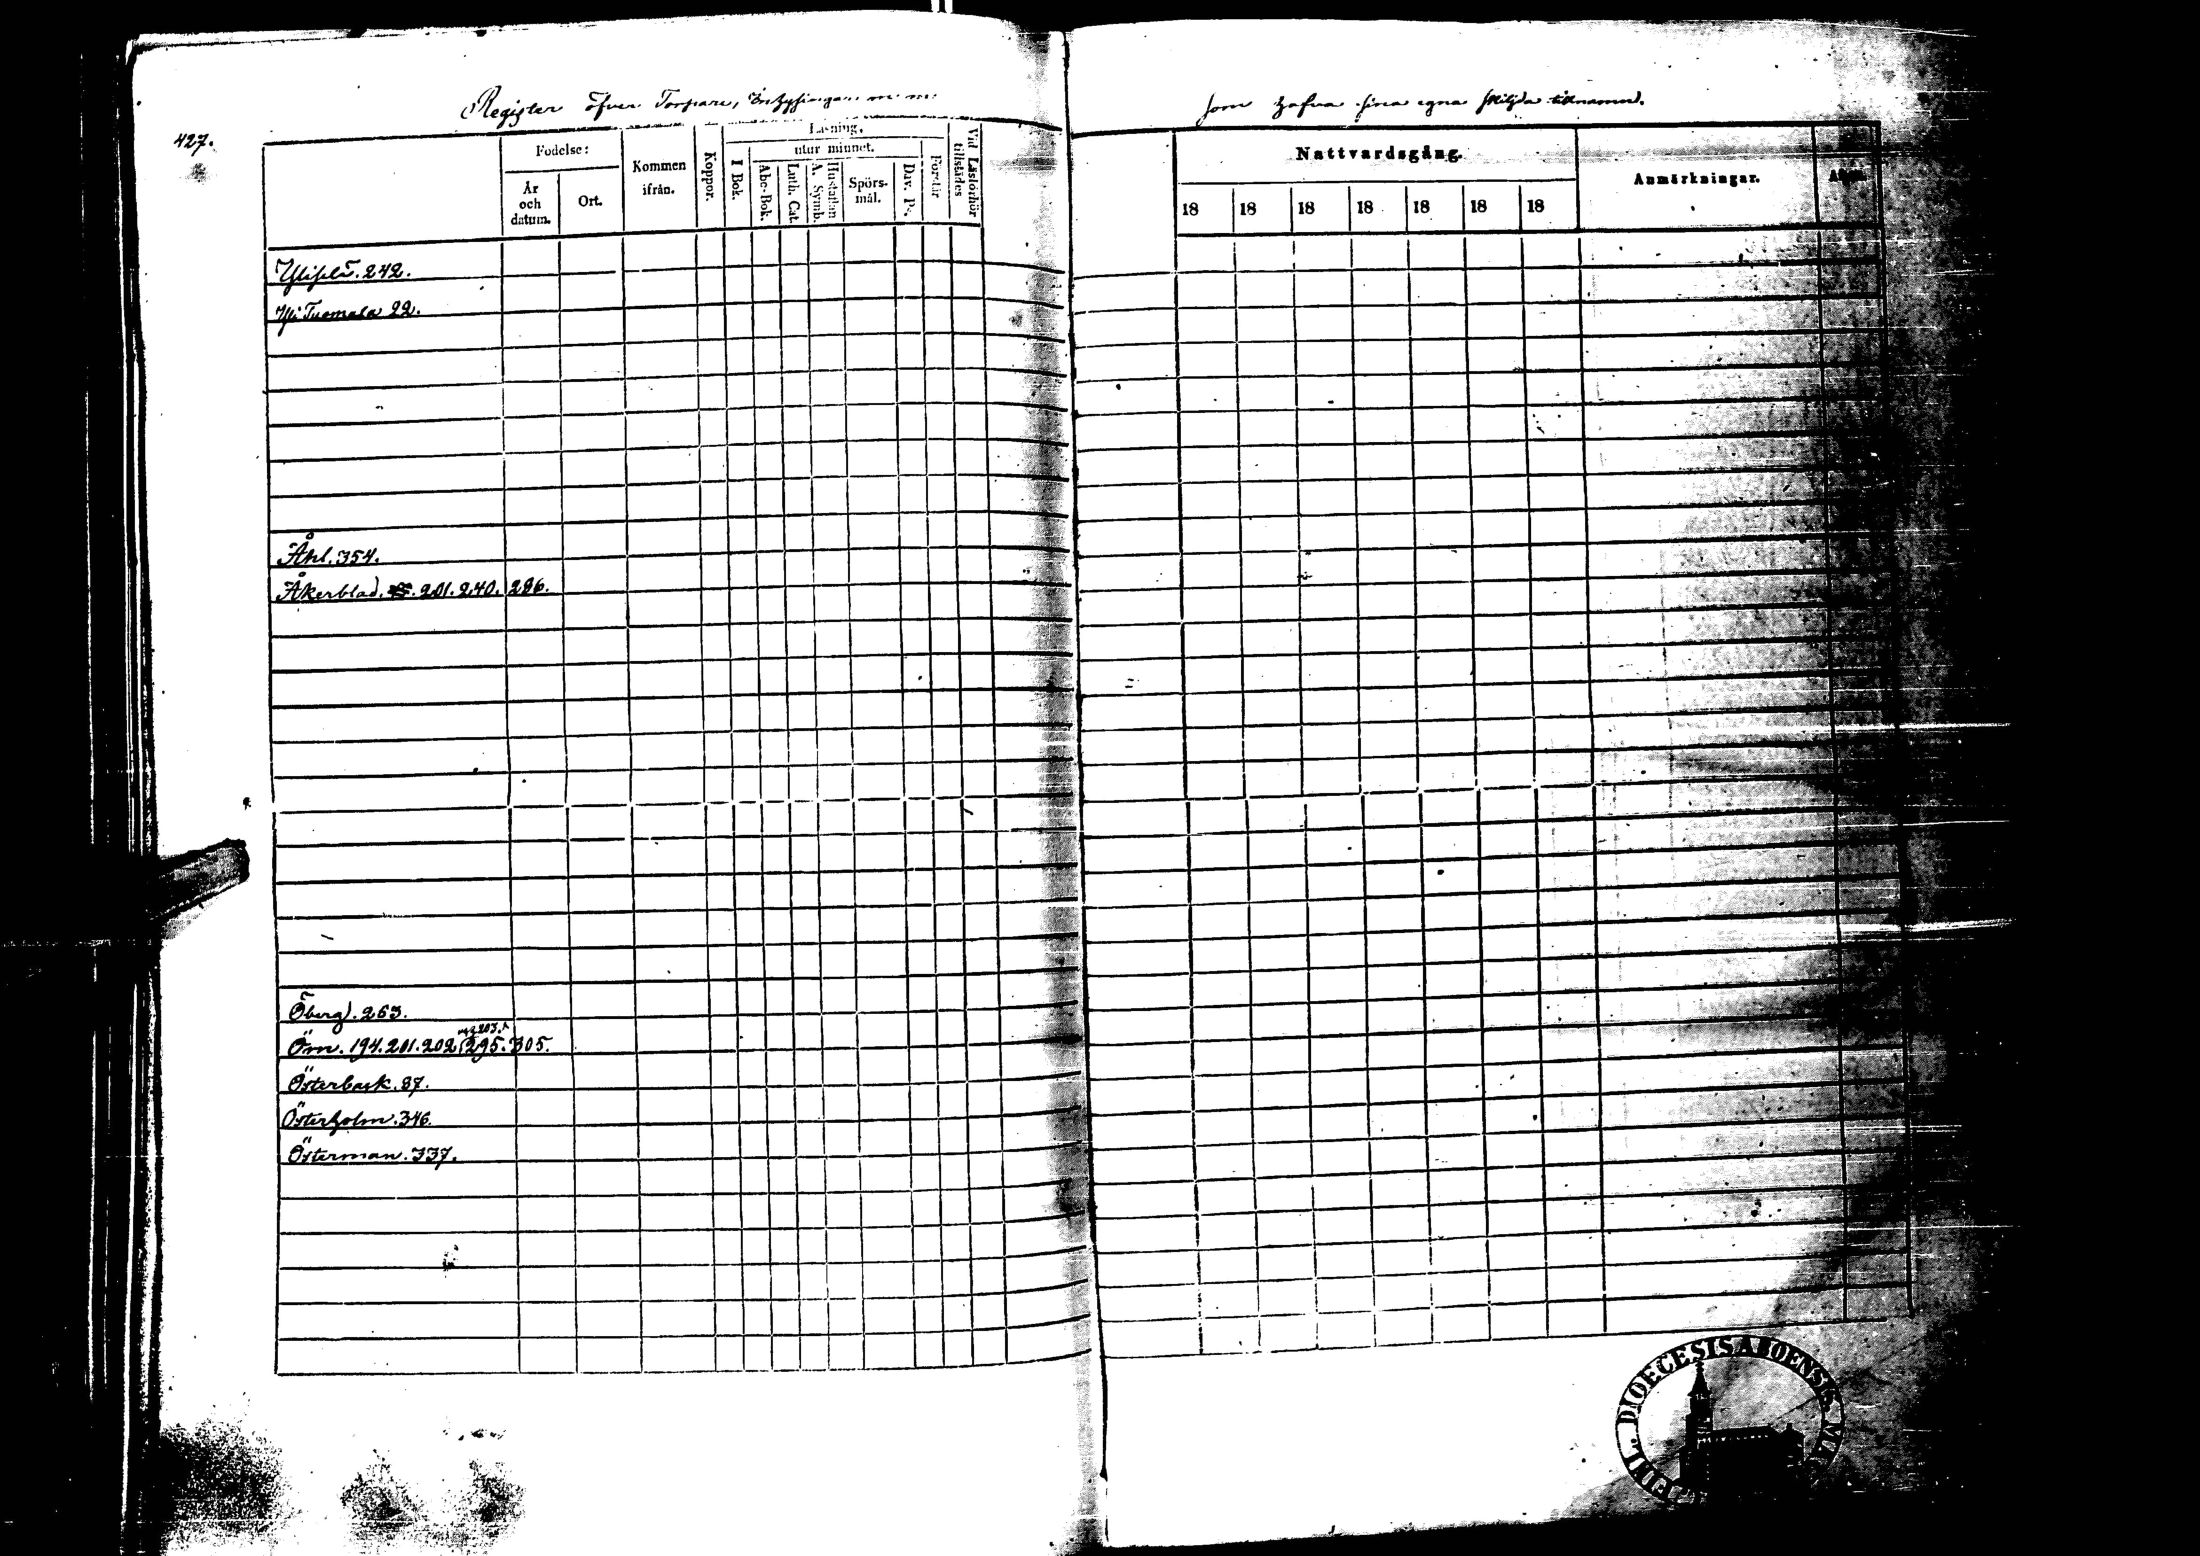 Register öfver Torpare, Inhysingar m: m:
som hafva sina egna skiljda tillnamn.
427.
Födelse:
År och datum.
Ort.
Kommen ifrån.
Koppor.
Läsning,
I Bok.
utur minnet.
Abc-Bok.
Luth. Cat.
Hustaflan A. Symb.
Spörs-mål.
Dav. Ps.
Förstår
Vid Läsförhör tillstädes
Nattvardsgång.
18 18 18 18 18 18 18
Anmärkningar.
242.
Yli Tuomala 22.
Åhl. 354.
Åkerblad. 201. 240. 286.
Öberg. 263.
Öm. 194. 201. 202. 203. 295. 305.
Österback. 87.
Österholm. 346.
Österman. 337.
DIOECESIS ABOENSIS